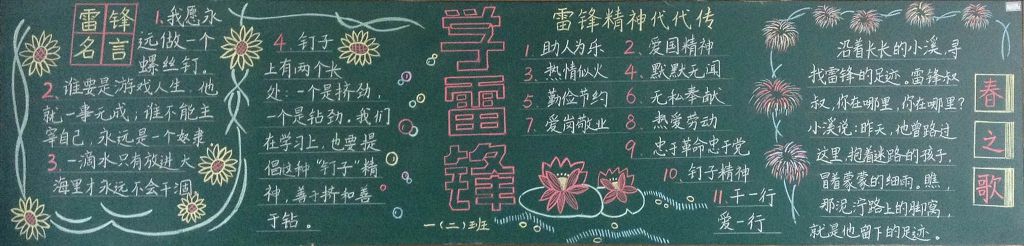 雷锋
名言
1、我愿永
远做一个
螺丝钉。
2、谁要是游戏人生，他
就一事无成；谁不能主
宰自己，永远是一个奴隶
3、一滴水只有放进大
海里才永远不会干涸。
4、钉子
上有两个长
处：一个是挤劲，
一个是钻劲，我们
在学习上，也要提
倡这种"钉子"精
神，善于挤和善
于钻。
学雷锋
一(二)班
雷锋精神代代传
1、助人为乐 2、爱国精神
3、热情似火 4、默默无闻
5、勤俭节约 6、无私奉献
7、爱岗敬业 8、热爱劳动
9、忠于革命忠于党
10、钉子精神
11、干一行
爱一行
沿着长长的小溪，寻
找雷锋的足迹。雷锋叔
叔，你在哪里，你在哪里？
小溪说：昨天，他曾路过
这里，抱着迷路的孩子，
冒着蒙蒙的细雨。瞧，
那泥泞路上的脚窝，
就是他留下的足迹。
春之歌